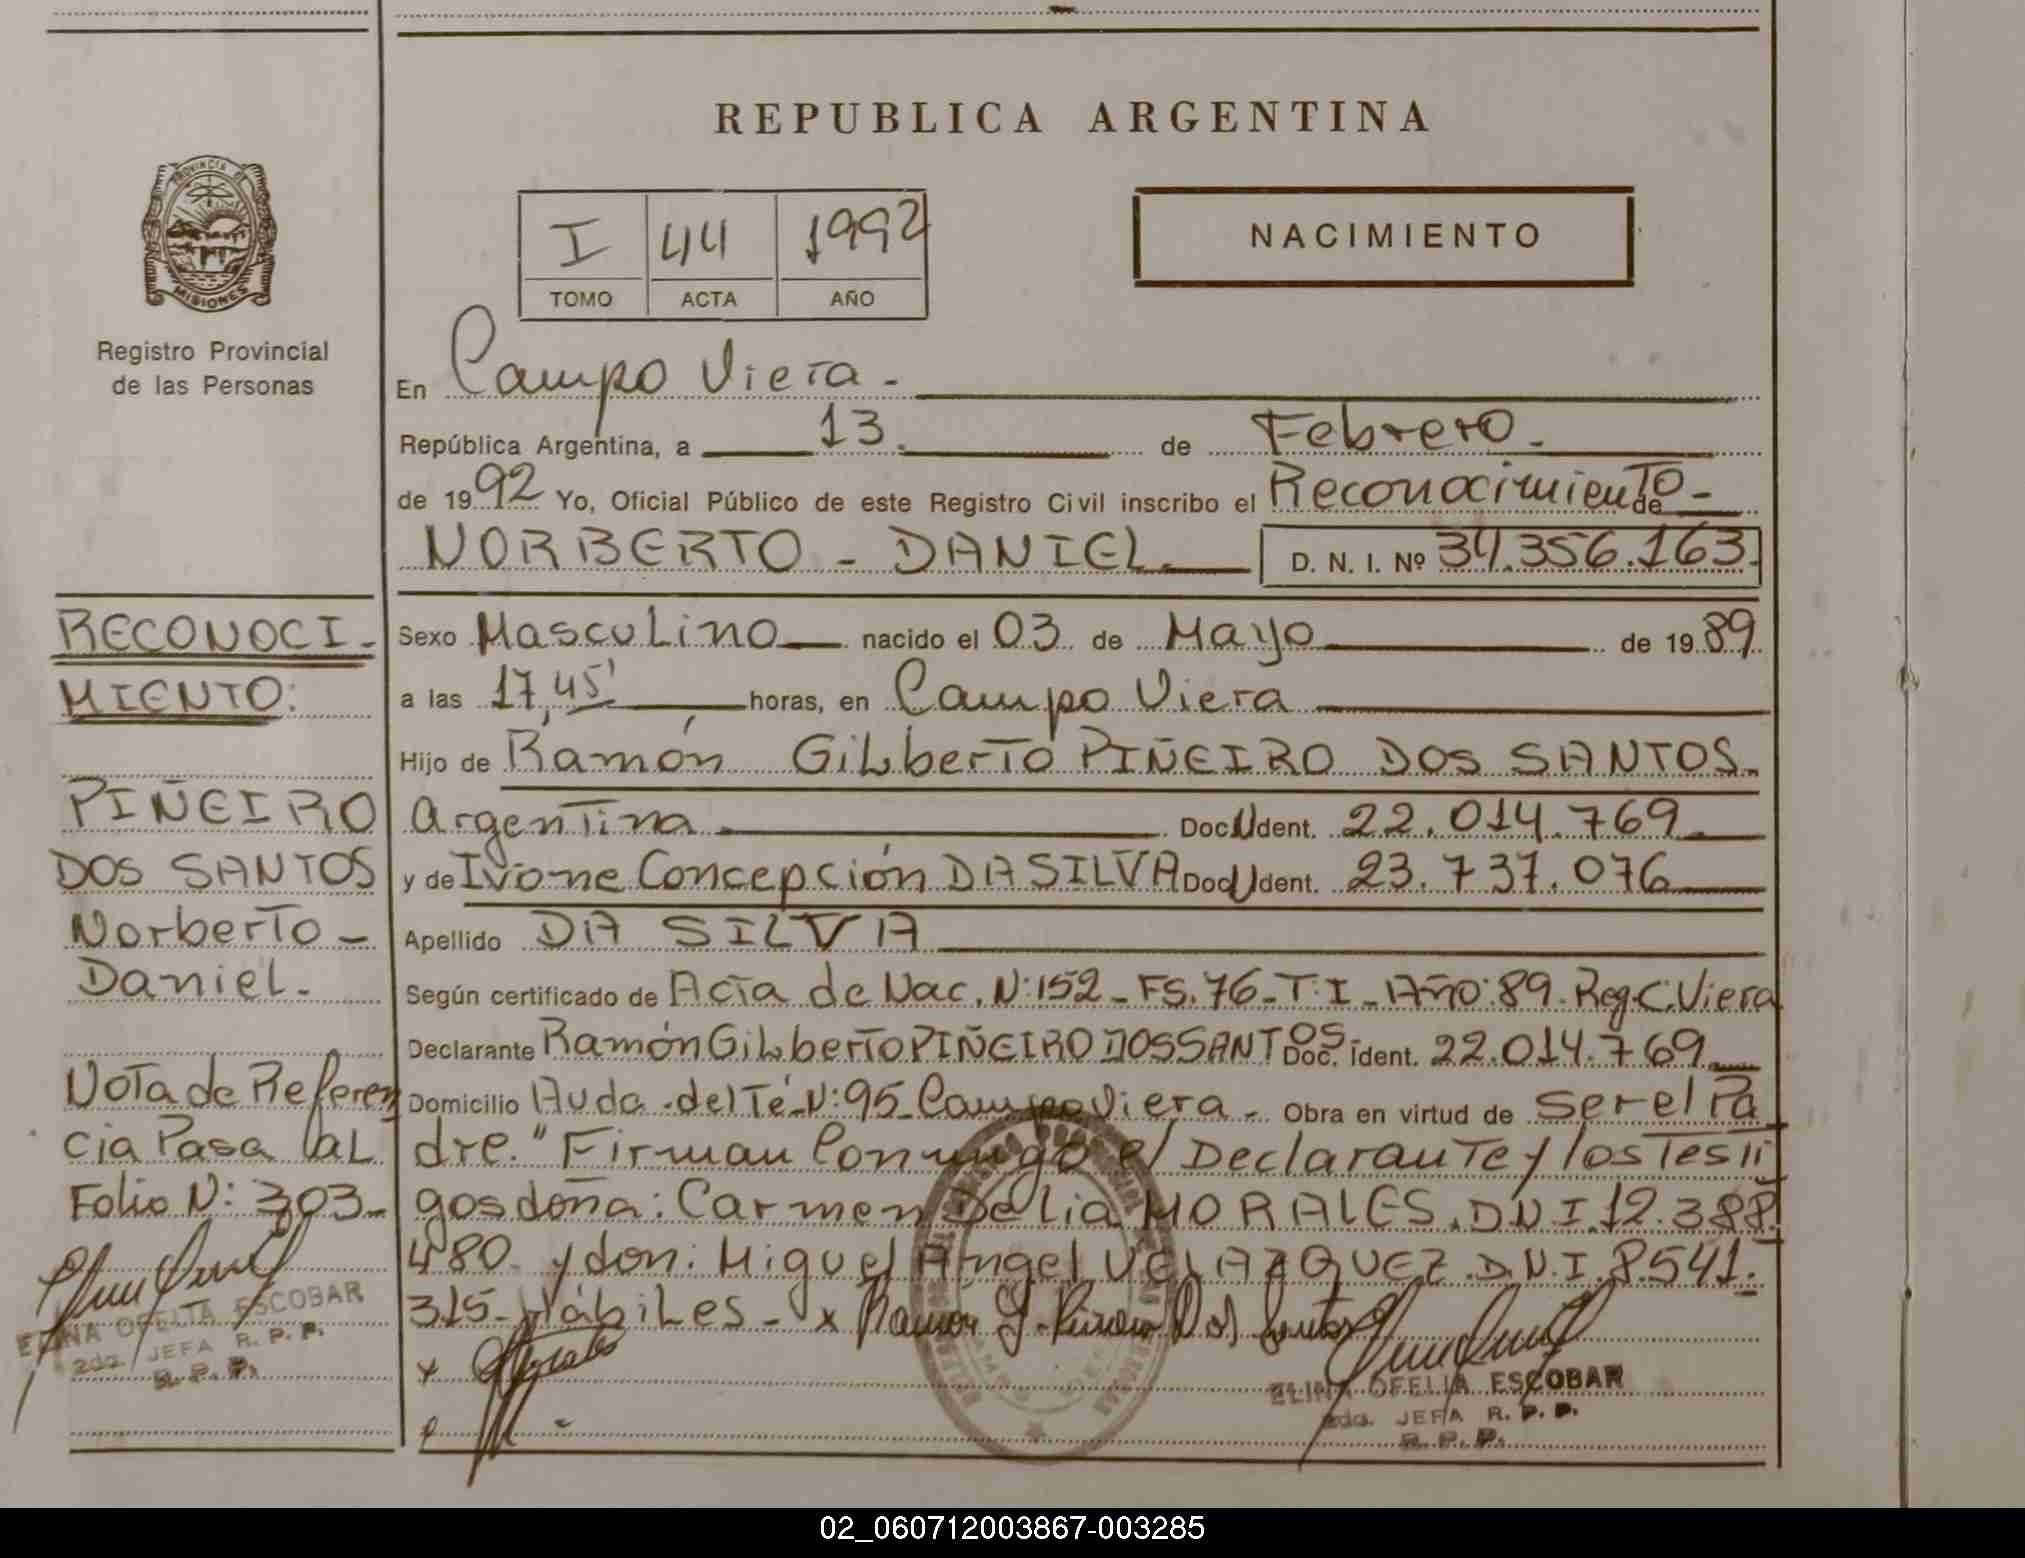 REPUBLICA ARGENTINA
PROVINCIA DE
MISIONES
Registro Provincial
de las Personas
I 44 1992
TOMO ACTA AÑO
NACIMIENTO
En Campo Viera.-
República Argentina, a 13. de Febrero.-
de 1992 Yo, Oficial Público de este Registro Civil inscribo el Reconocimiento- de
NORBERTO - DANIEL. D. N. I. Nº 34.356.163.
Sexo Masculino nacido el 03 de Mayo de 1989
a las 17,45' horas, en Campo Viera
Hijo de Ramón Gilberto PIÑEIRO DOS SANTOS.
Argentina Doc. Ident. 22.014.769.
y de Ivone Concepción DA SILVA Doc. Ident. 23.737.076
Apellido DA SILVA
Según certificado de Acta de Nac. N:152-FS.76-T:I-Año:89.Reg.C.Viera
Declarante Ramón Gilberto PIÑEIRO DOS SANTOS. Doc. Ident. 22.014.769.
Domicilio Avda.del Té-N:95-Campo Viera.- Obra en virtud de ser el Pa
dre." Firman Conmigo el Declarante y los Testi
gos doña: Carmen Delia MORALES.DNI.12.388.
480. y don: Miguel Angel VELAZQUEZ.D.N.I.8.541.
315-Hábiles- x Ramón G. Piñeiro Dos Santos
x Morales
ELINA OFELIA ESCOBAR
2da. JEFA R. P. P.
R. P. P.
RECONOCI-
MIENTO:
PIÑEIRO
DOS SANTOS
Norberto-
Daniel.
Nota de Referen
cia Pasa al
Folio N: 303-
ELINA OFELIA ESCOBAR
2da. JEFA R. P. P.
R. P. P.
02_060712003867-003285